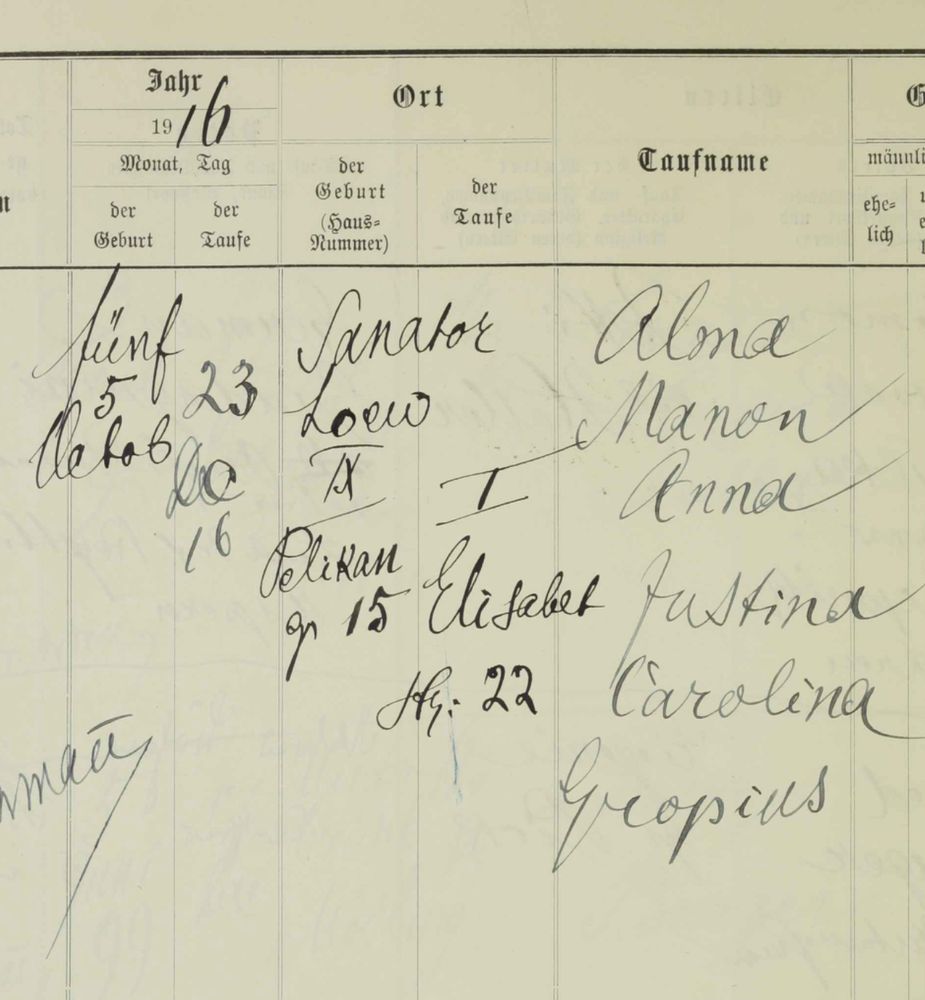 Jahr
1916
Monat, Tag
der Geburt
der Taufe
Ort
der Geburt (Haus-Nummer)
der Taufe
Taufname
männli
ehe-
lich
fünf
5
Octob
23
Dec
16
Sanator
Loew
IX
Pelikan
g 15
I
Elisabet
Stg: 22
Alma
Manon
Anna
Justina
Carolina
Gropius